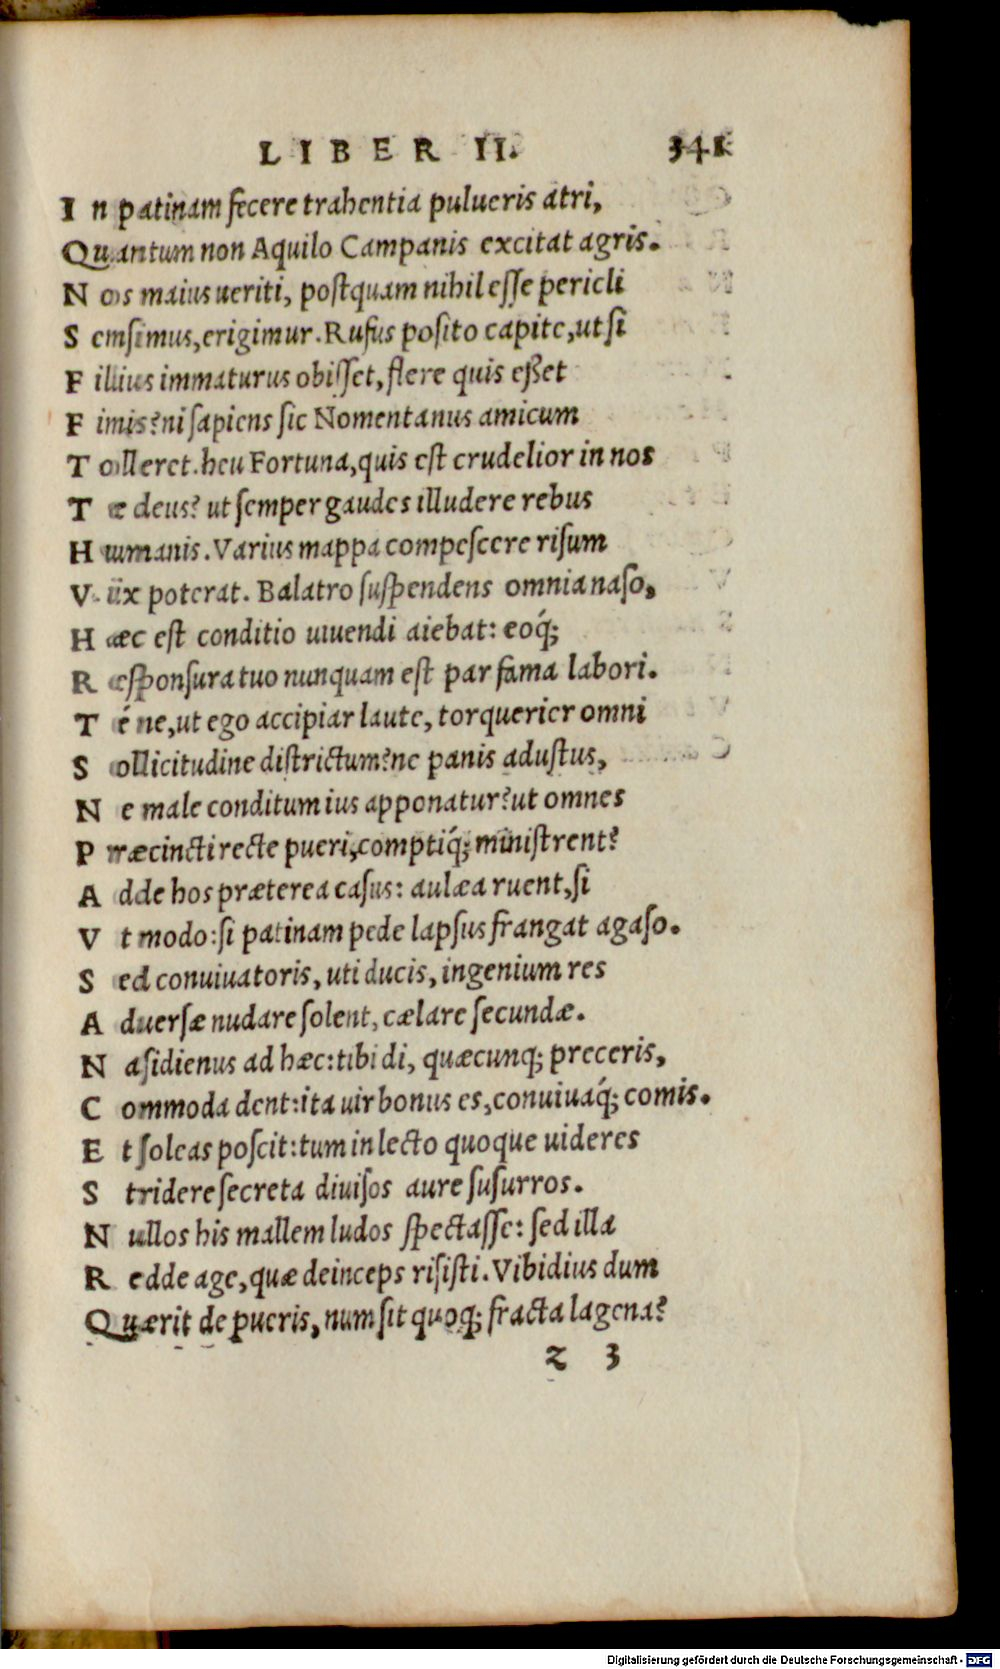 LIBER II. 341
In patinam fecere trahentia pulueris atri,
Quantum non Aquilo Campanis excitat agris.
Nos maius ueriti, postquam nihil esse pericli
Sensimus, erigimur. Rufus posito capite, ut si
Filius immaturus obisset, flere quis eßet
Finis? ni sapiens sic Nomentanus amicum
Tolleret. heu Fortuna, quis est crudelior in nos
Te deus? ut semper gaudes illudere rebus
Humanis. Varius mappa compescere risum
Vix poterat. Balatro suspendens omnia naso,
Hæc est conditio uiuendi aiebat: eoq́;
Responsura tuo nunquam est par fama labori.
Té ne, ut ego accipiar laute, torquerier omni
Sollicitudine districtum? ne panis adustus,
Ne male conditum ius apponatur? ut omnes
Præcincti recte pueri, comptiq́; ministrent?
Adde hos præterea casus: aulæa ruent, si
Vt modo: si patinam pede lapsus frangat agaso.
Sed conuiuatoris, uti ducis, ingenium res
Aduersæ nudare solent, cælare secundæ.
Nasidienus ad hæc: tibi di, quæcunq; preceris,
Commoda dent: ita uir bonus es, conuiuaq́; comis.
Et soleas poscit: tum in lecto quoque uideres
Stridere secreta diuisos aure susurros.
Nullos his mallem ludos spectasse: sed illa
Redde age, quæ deinceps risisti. Vibidius dum
Quærit de pueris, num sit quoq; fracta lagena?
z 3
Digitalisierung gefördert durch die Deutsche Forschungsgemeinschaft - DFG